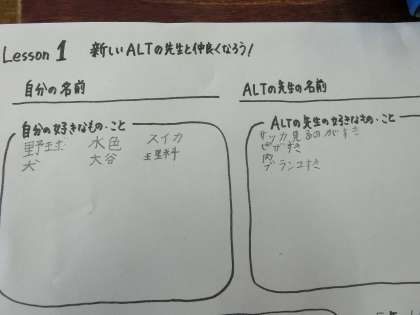 Lesson 1 新しいALTの先生と仲良くなろう!
自分の名前
ALTの先生の名前
自分の好きなもの・こと
野球 水色 スイカ
犬 大谷 理科
ALTの先生の好きなもの・こと
サッカ見るのがすき
ピザすき
肉
ブランコすき